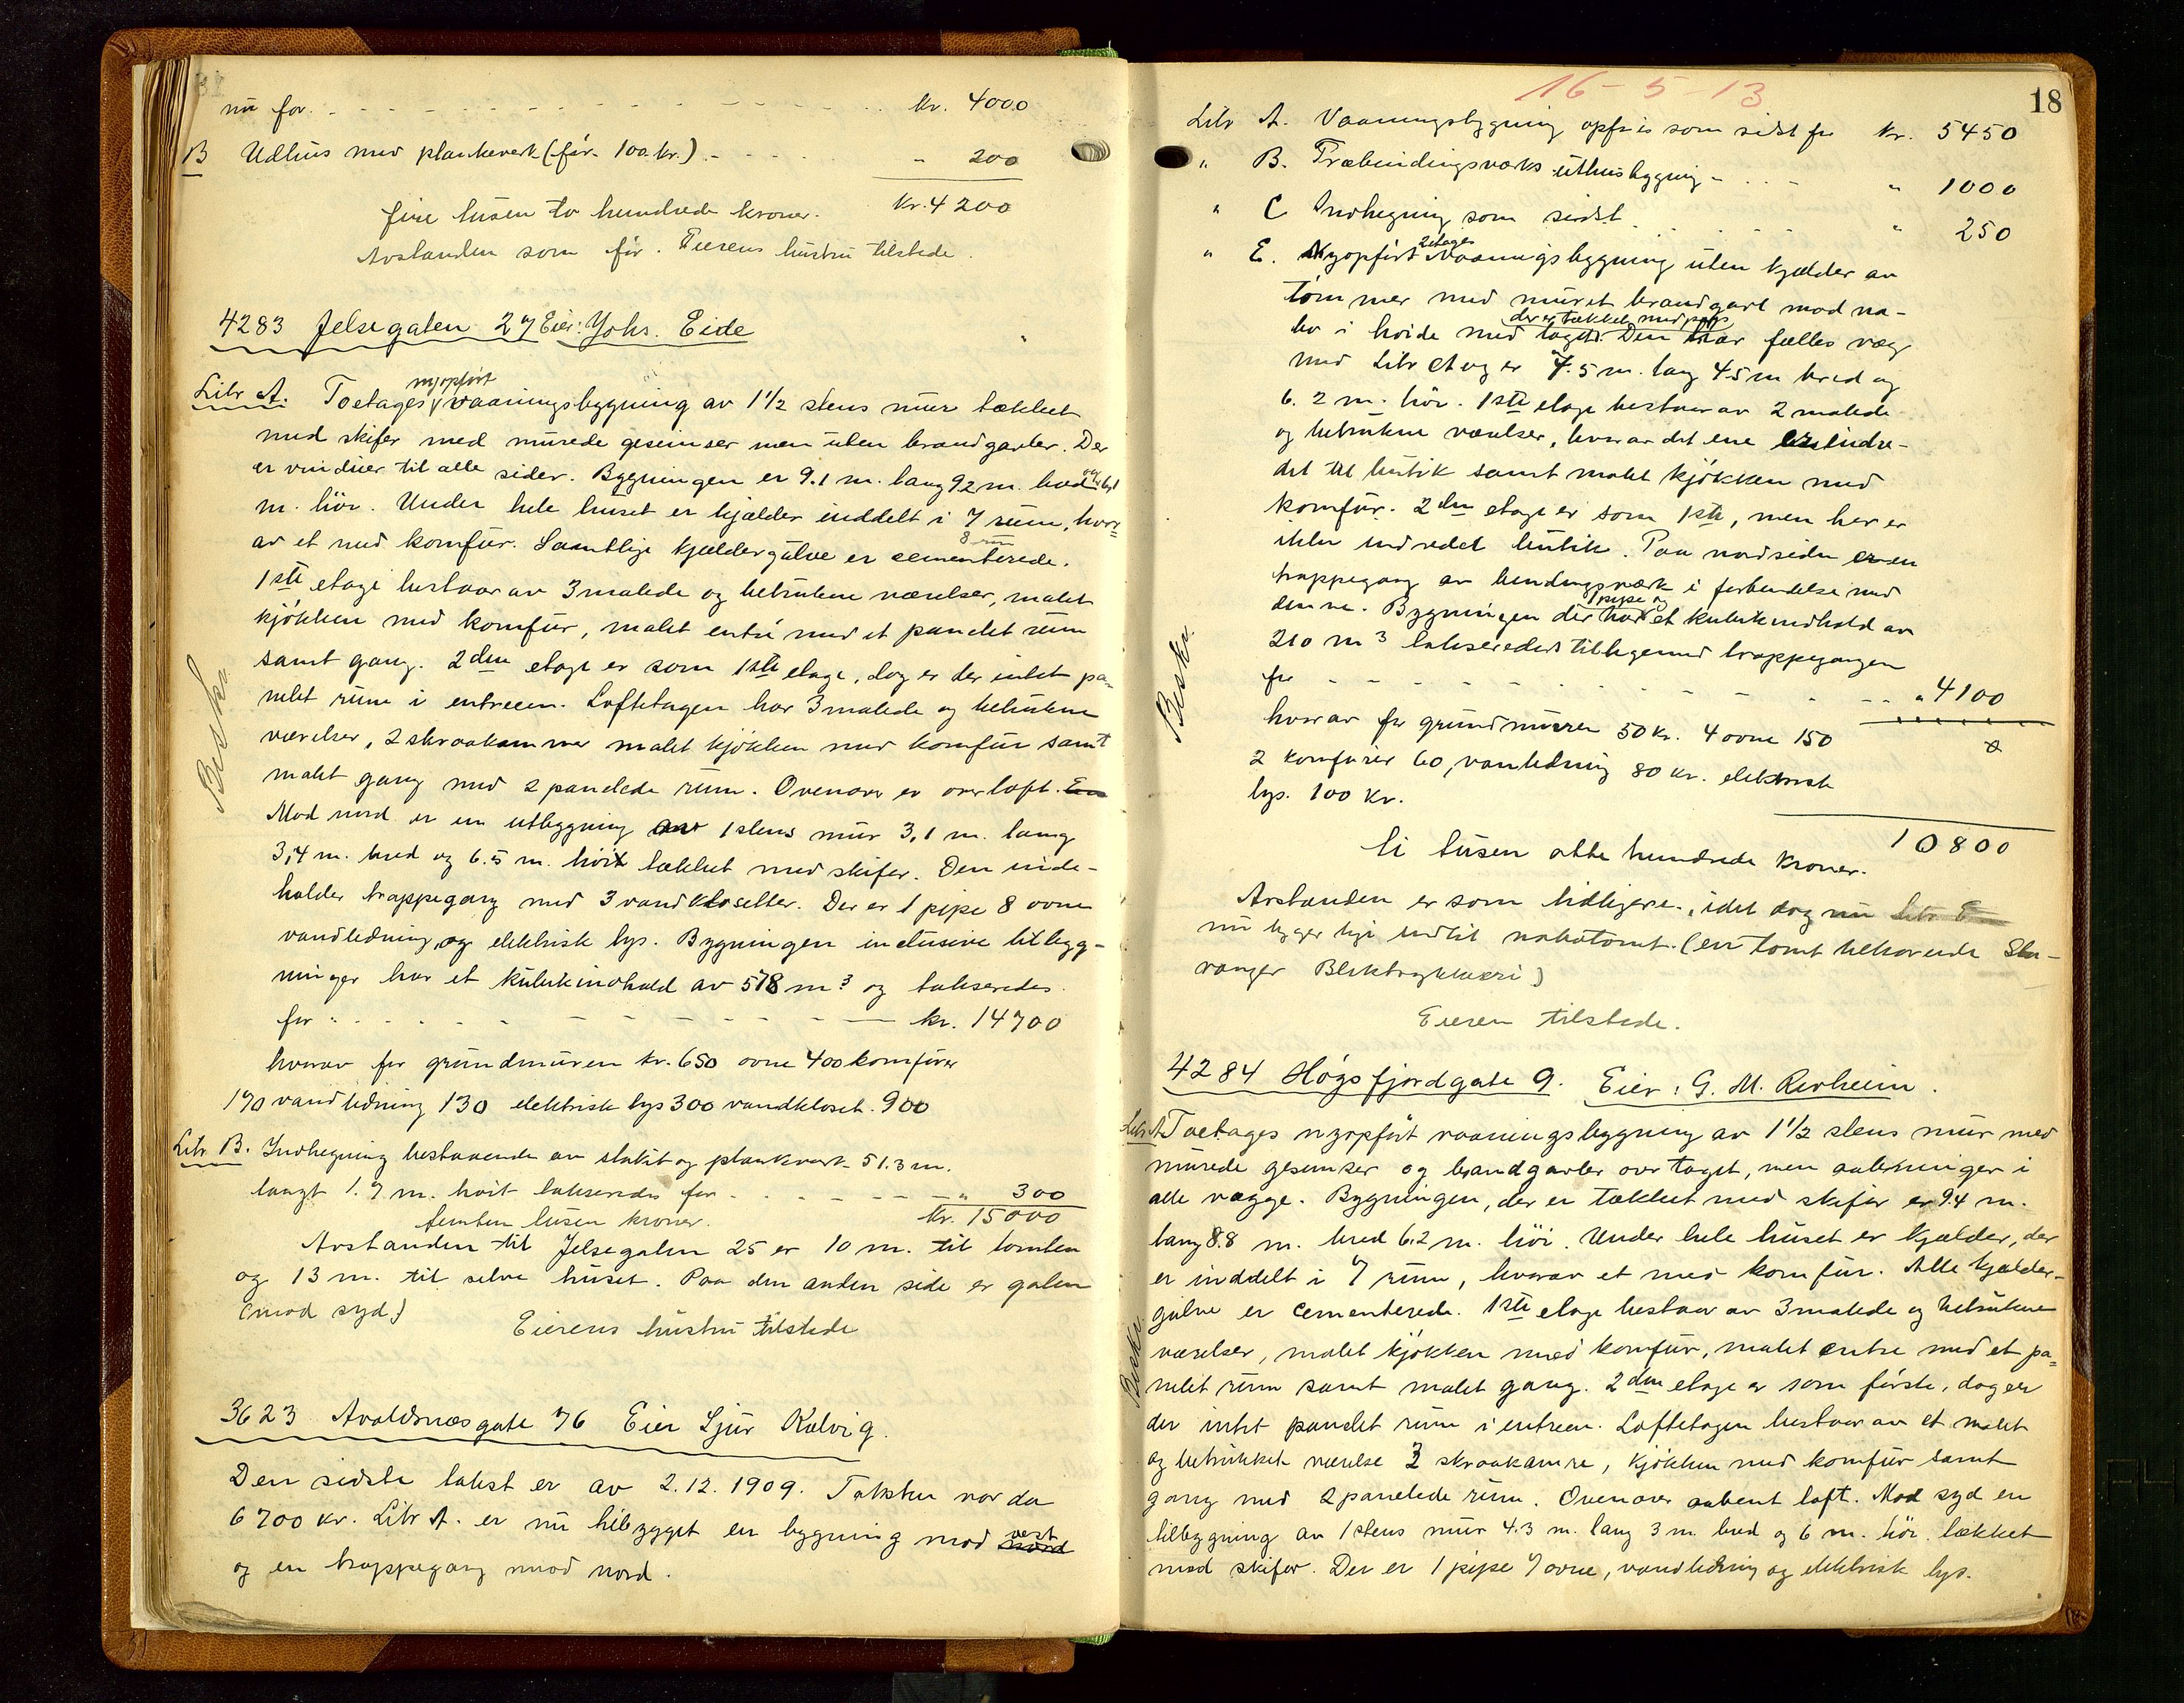 nu for. - - - - - - - - - - - - kr. 4000
B Udhus med plankeverk (før 100 kr.) - - - - " 200
fire tusen to hundrede kroner. Kr. 4200
Avstanden som før. Eierens hustru tilstede.
4283 Jelsegaten 27 Eier: Johs. Eide
nyopført
Litr A. Toetages vaaningsbygning av 1 1/2 stens mur tækket
med skifer med murede gesimser men uten brandgavler. Der
er vinduer til alle sider. Bygningen er 9.1 m. lang 9.2 m. bred og 6.1
m. høi. Under hele huset er kjælder inddelt i 7 rum, hvor-
av et med komfur. Samtlige kjældergulve er sementerede.
1ste etage bestaar av 3 malede og betrukne værelser, malet
kjøkken med komfur, malet entré med et panelet rum
samt gang. 2den etage er som 1ste etage, dog er der intet pa-
nelet rum i entreen. Loftetagen har 3 malede og betrukne
værelser, 2 skraakammer malet kjøkken med komfur samt
malet gang med 2 panelede rum. Ovenover er overloft. En
Mod nord er en utbygning av 1 stens mur 3,1 m. lang
3,4 m. bred og 6.5 m. høit tækket med skifer. Den inde-
holder trappegang med 3 vandklosetter. Der er 1 pipe 8 ovne
vandledning og elektrisk lys. Bygningen inclusive tilbygg-
ninger har et kubikindhold av 578 m3 og takseredes
for - - - - - - - - - - kr. 14700
hvorav for grundmuren kr. 650 ovne 400 komfurer
190 vandledning 130 elektrisk lys 300 vandkloset. 900
Litr. B. Indhegning bestaaende av stakit og plankverk 51.3 m.
langt 1.7 m. høit takseredes for - - - - - - " 300
femten tusen kroner. Kr. 15000
Avstanden til Jelsegaten 25 er 10 m. til tomten
og 13 m. til selve huset. Paa den anden side er gaten
(mod syd)
Eierens hustru tilstede
Beskr
3623 Avaldsnæsgate 76 Eier Sjur Kalvig.
Den sidste takst er av 2.12.1909. Taksten var da
6700 kr. Litr A. er nu tilbygget en bygning mod nord vest
og en trappegang mod nord.
16-5-13
18
Litr A. Vaaningsbygning opføres som sidst for Kr. 5450
" B. Træbindingsverks uthusbygning - - - " 1000
" C Indhegning som sidst " 250
2 etages
" E. Nyopført vaaningsbygning uten kjælder av
tømmer med muret brandgavl mod na-
der er tækket med papp
bo i høide med taget. Den har fælles væg
med Litr A og er 7.5 m. lang 4.5 m bred og
6.2 m. høi. 1ste etage bestaar av 2 malede
og betrukne værelser, hvorav det ene er indre-
det til butik samt malet kjøkken med
komfur. 2den etage er som 1ste, men her er
ikke indredet butik. Paa nordsiden er en
trappegang av bindingsverk i forbindelse med
1 pipe og
denne. Bygningen der har et kubikindhold av
210 m3 takseredes tillegemed trappegangen
for - - - - - - - - - - - " 4100
hvorav for grundmuren 50 Kr. 4 ovne 150
2 komfurer 60, vanledning 80 kr. elektrisk
lys. 100 Kr.
10800
ti tusen otte hundrede kroner.
Avstanden er som tidligere., idet dog nu Litr E
nu ligger lige indtil nabotomt. (en tomt tilhørende Sta-
vanger Bliktrykkeri)
Eieren tilstede.
Beskr.
4284 Høgsfjordgate 9. Eier: G. M. Revheim.
Litr A Toetages nyopført vaaningsbygning av 1 1/2 stens mur med
murede gesimser og brandgavler over taget, men aabninger i
alle vægge. Bygningen, der er tækket med skifer er 9.4 m.
lang 8.8 m. bred 6.2 m. høi. Under hele huset er kjælder, der
er inddelt i 7 rum, hvorav et med komfur. Alle kjælder-
gulve er cementerede. 1ste etage bestaar av 3 malede og betrukne
værelser, malet kjøkken med komfur, malet entre med et pa-
nelet rum samt malet gang. 2den etage er som første, dog er
der intet panelet rum i entreen. Loftetagen bestaar av et malet
og betrukket værelse 3 skraakamre, kjøkken med komfur samt
gang med 2 panelede rum. Ovenover aabent loft. Mod syd en
tilbygning av 1 stens mur 4.3 m. lang 3 m. bred og 6 m. høi tækket
med skifer. Der er 1 pipe 7 ovne, vandledning og elektrisk lys.
Beskr.